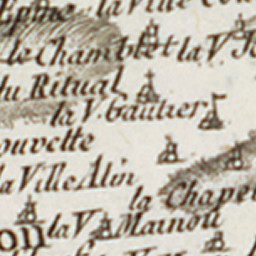 Epine la Ville
le Chamblet la V.
du Ritual
la V. Gautier
ouvette
la Ville Alin
la Chapel
la V. Mainou